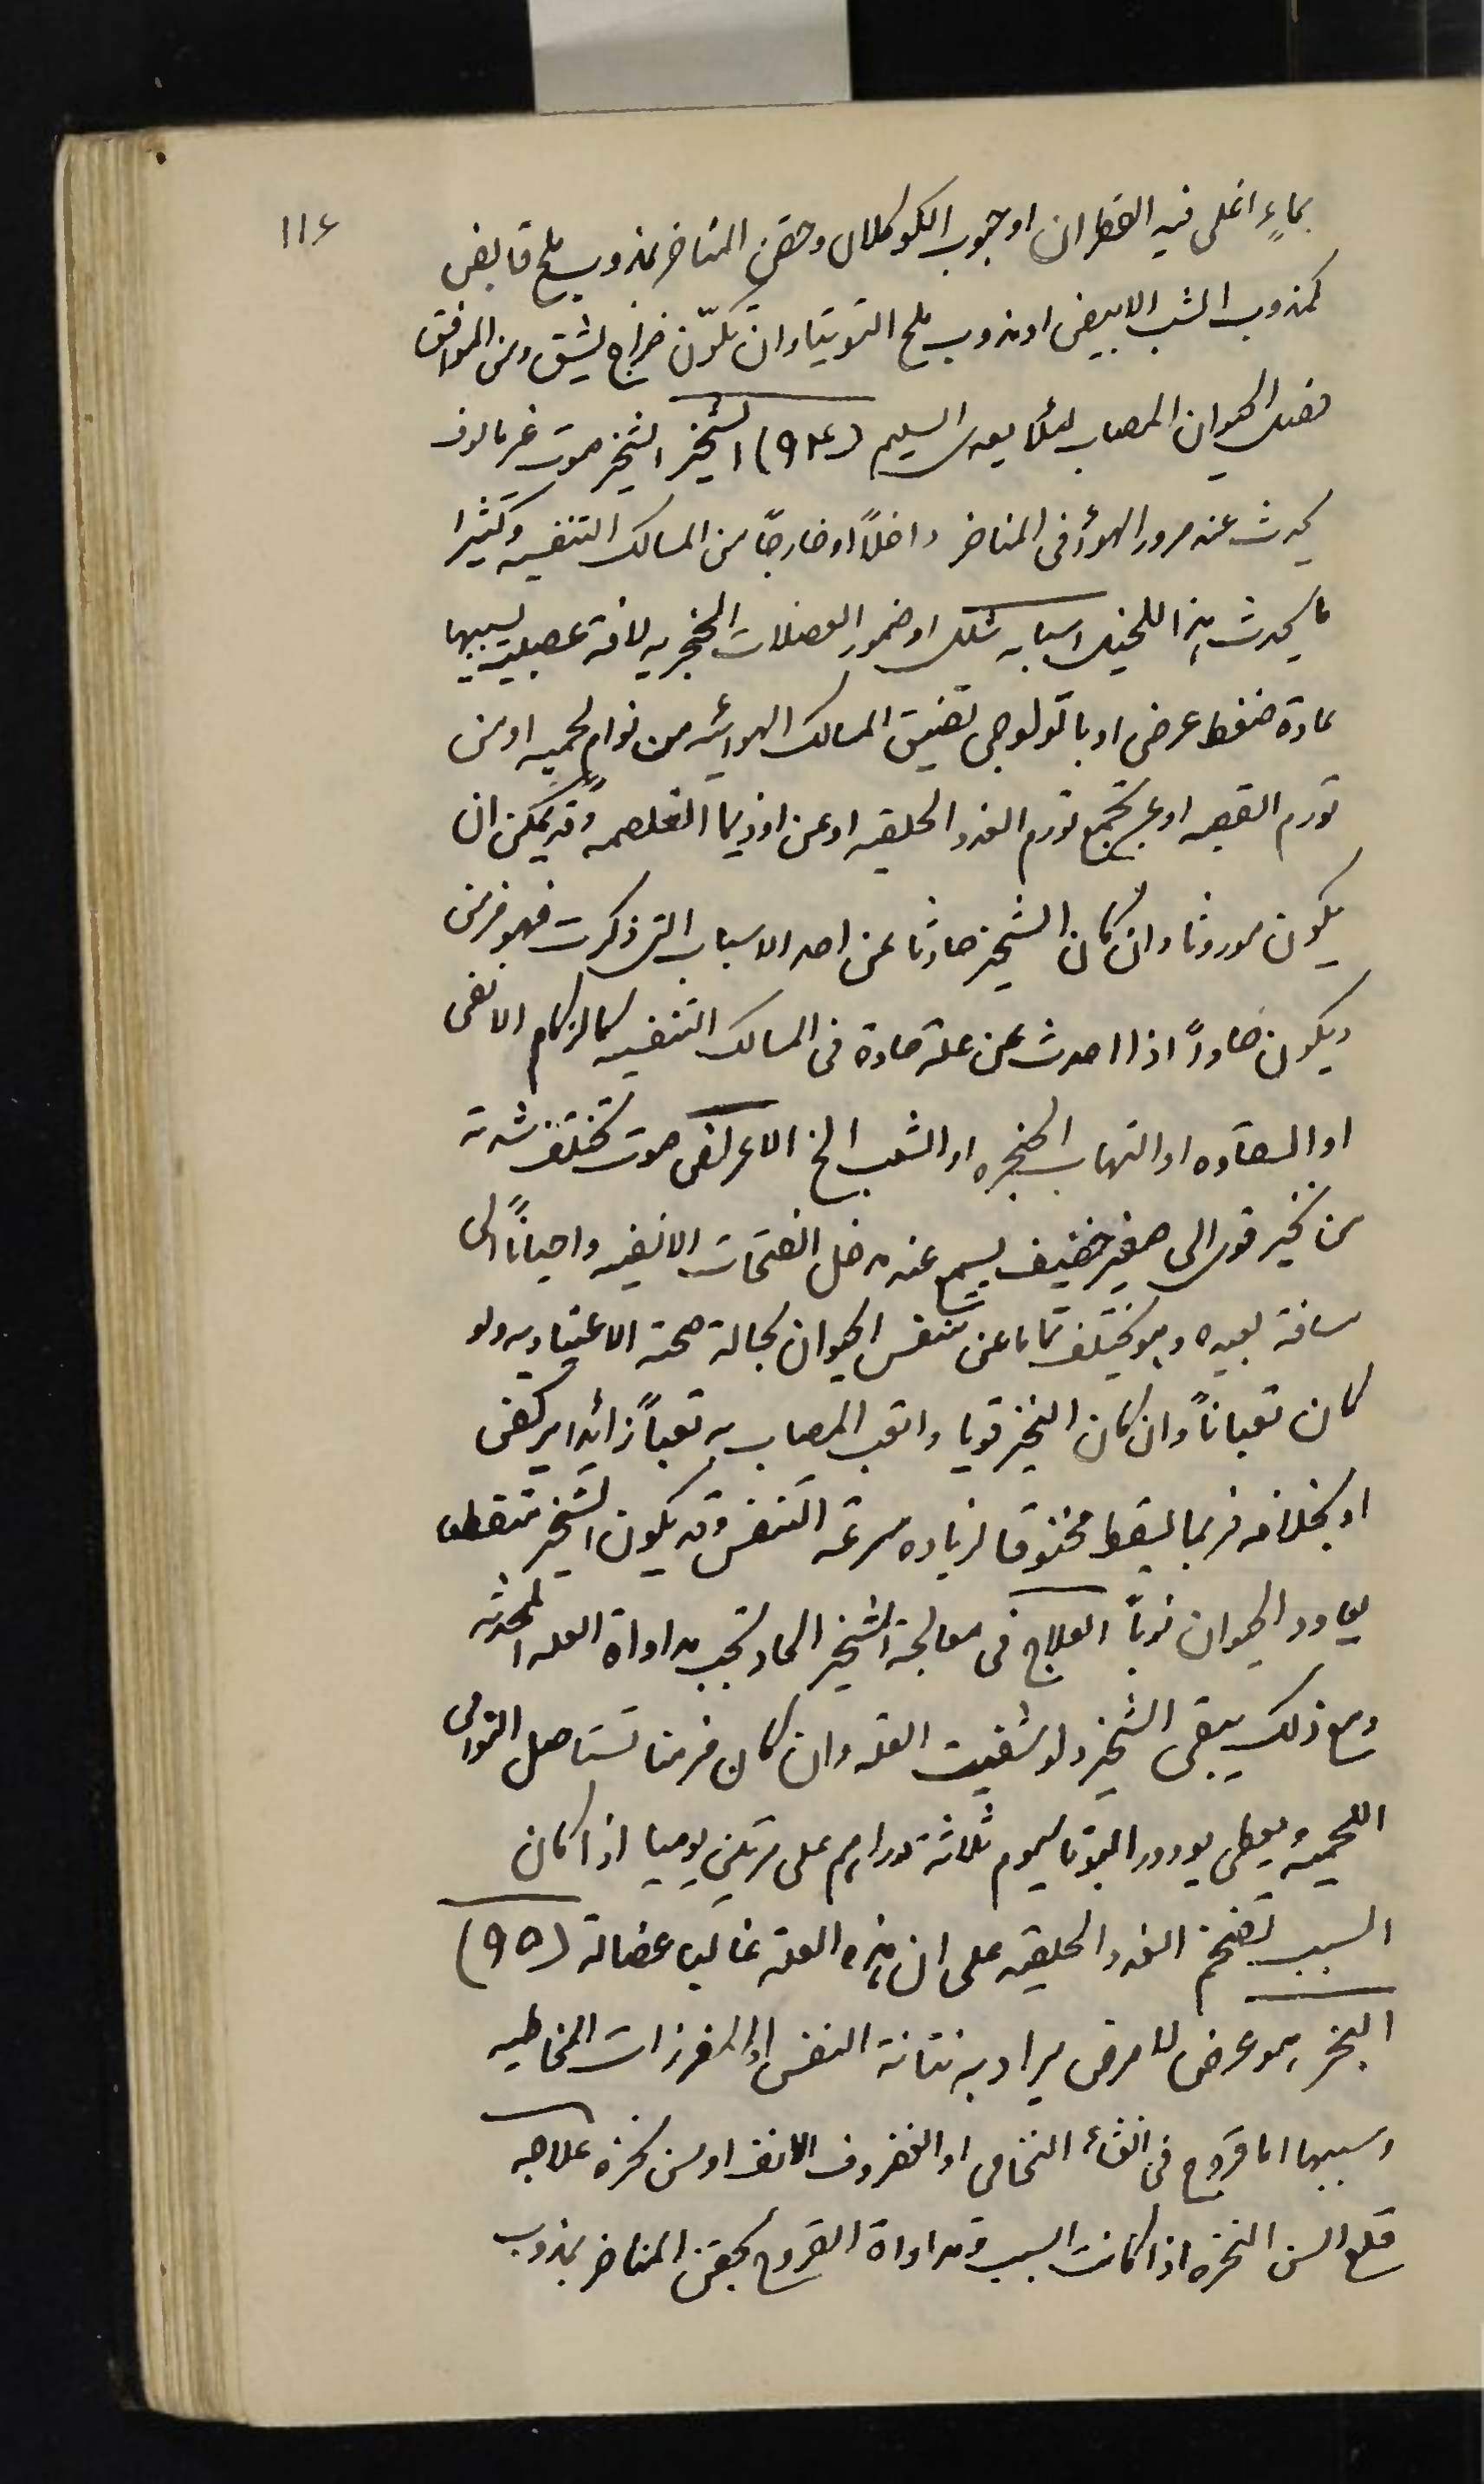 ١١٤
بماءٍ اغلى فيه القطران او حبوب الكوكلان وحقن المناخر بمذوب ملح قابض
كمذوب الشب الابيض او مذوب ملح التوتيا وان تكوّن خراج يشق ومن الموافق
فصل الحيوان المصاب لئلا يعدى السليم (٩٤) الشخير الشخير صوت غير مالوف
يحدث عند مرور الهوأ فى المناخر داخلاً او خارجًا من المسالك التنفسيه وكثيرا
ما يحدث هذا للخيل اسبابه شلل او ضمور العضلات الحنجريه لافة عصبية يسببها
عادة ضغط عرضى او باتولوجى تضيق المسالك الهوائيه من نوام لحميه او من
تورم القصبه او عن تجمع تورم الغدد الحلقيه او عن اوذيما الغلصمه وقد يمكن ان
يكون موروثا وان كان الشخير حادثا عن احد الاسباب التى ذكرت فهو مزمن
ويكون حاداً اذا احدث عن علة حادة فى المسالك التنفسيه كالزكام الانفى
او السقاوه او التهاب الحنجره او الشعب الخ الاعراض صوت تختلف شدته
من نخير قوى الى صفير خفيف يسمع عند مدخل الفتحات الانفيه واحياناً الى
مسافة بعيده وهو يختلف تماما عن تنفس الحيوان بحالة صحته الاعتياديه ولو
كان تعباناً وان كان النخير قويا واتعب المصاب به تعباً زائدا يركض
او بخلافه فربما يسقط مختوقا لزياده سرعة التنفس وقد يكون الشخير متقطعا
يعاود الحيوان نوباً العلاج فى معالجة الشخير الحاد تجب مداواة العله المحدثه
ومع ذلك يبقى الشخير ولو شفيت العله وان كان مزمنا تستاصل النوامى
اللحميه ويعطى يودور البوتاسيوم ثلاثة دراهم على مرتين يوميا اذا كان
السبب تضخم الغدد الحلقيه على ان هذه العلة غالبا عضالة (٩٥)
البخر هو عرض لا مرض يراد به نتانة النفس او المفرزات المخاطيه
وسببها اما قروح فى الغشأ النخامى او الغضروف الانف او سن نخره علاجه
قلع السن النخره اذا كانت السبب ومداواة القروح بحقن المناخر بمذوب